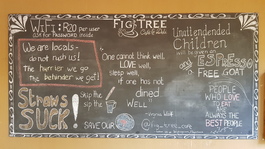 WiFi: R20 per user
ask for password inside
FIGTREE
We are locals -
do not rush us!
The hurrier we go
the behinder we get!
One cannot think well,
LOVE well,
sleep well,
if one has not
dined
WELL
Unattended
Children
will be given
ESPRESSO
FREE GOAT
PEOPLE
WHO LOVE
TO EAT
ARE
ALWAYS THE
BEST PEOPLE
Straws
SUCK!
Skip the
sip
SAVE OUR